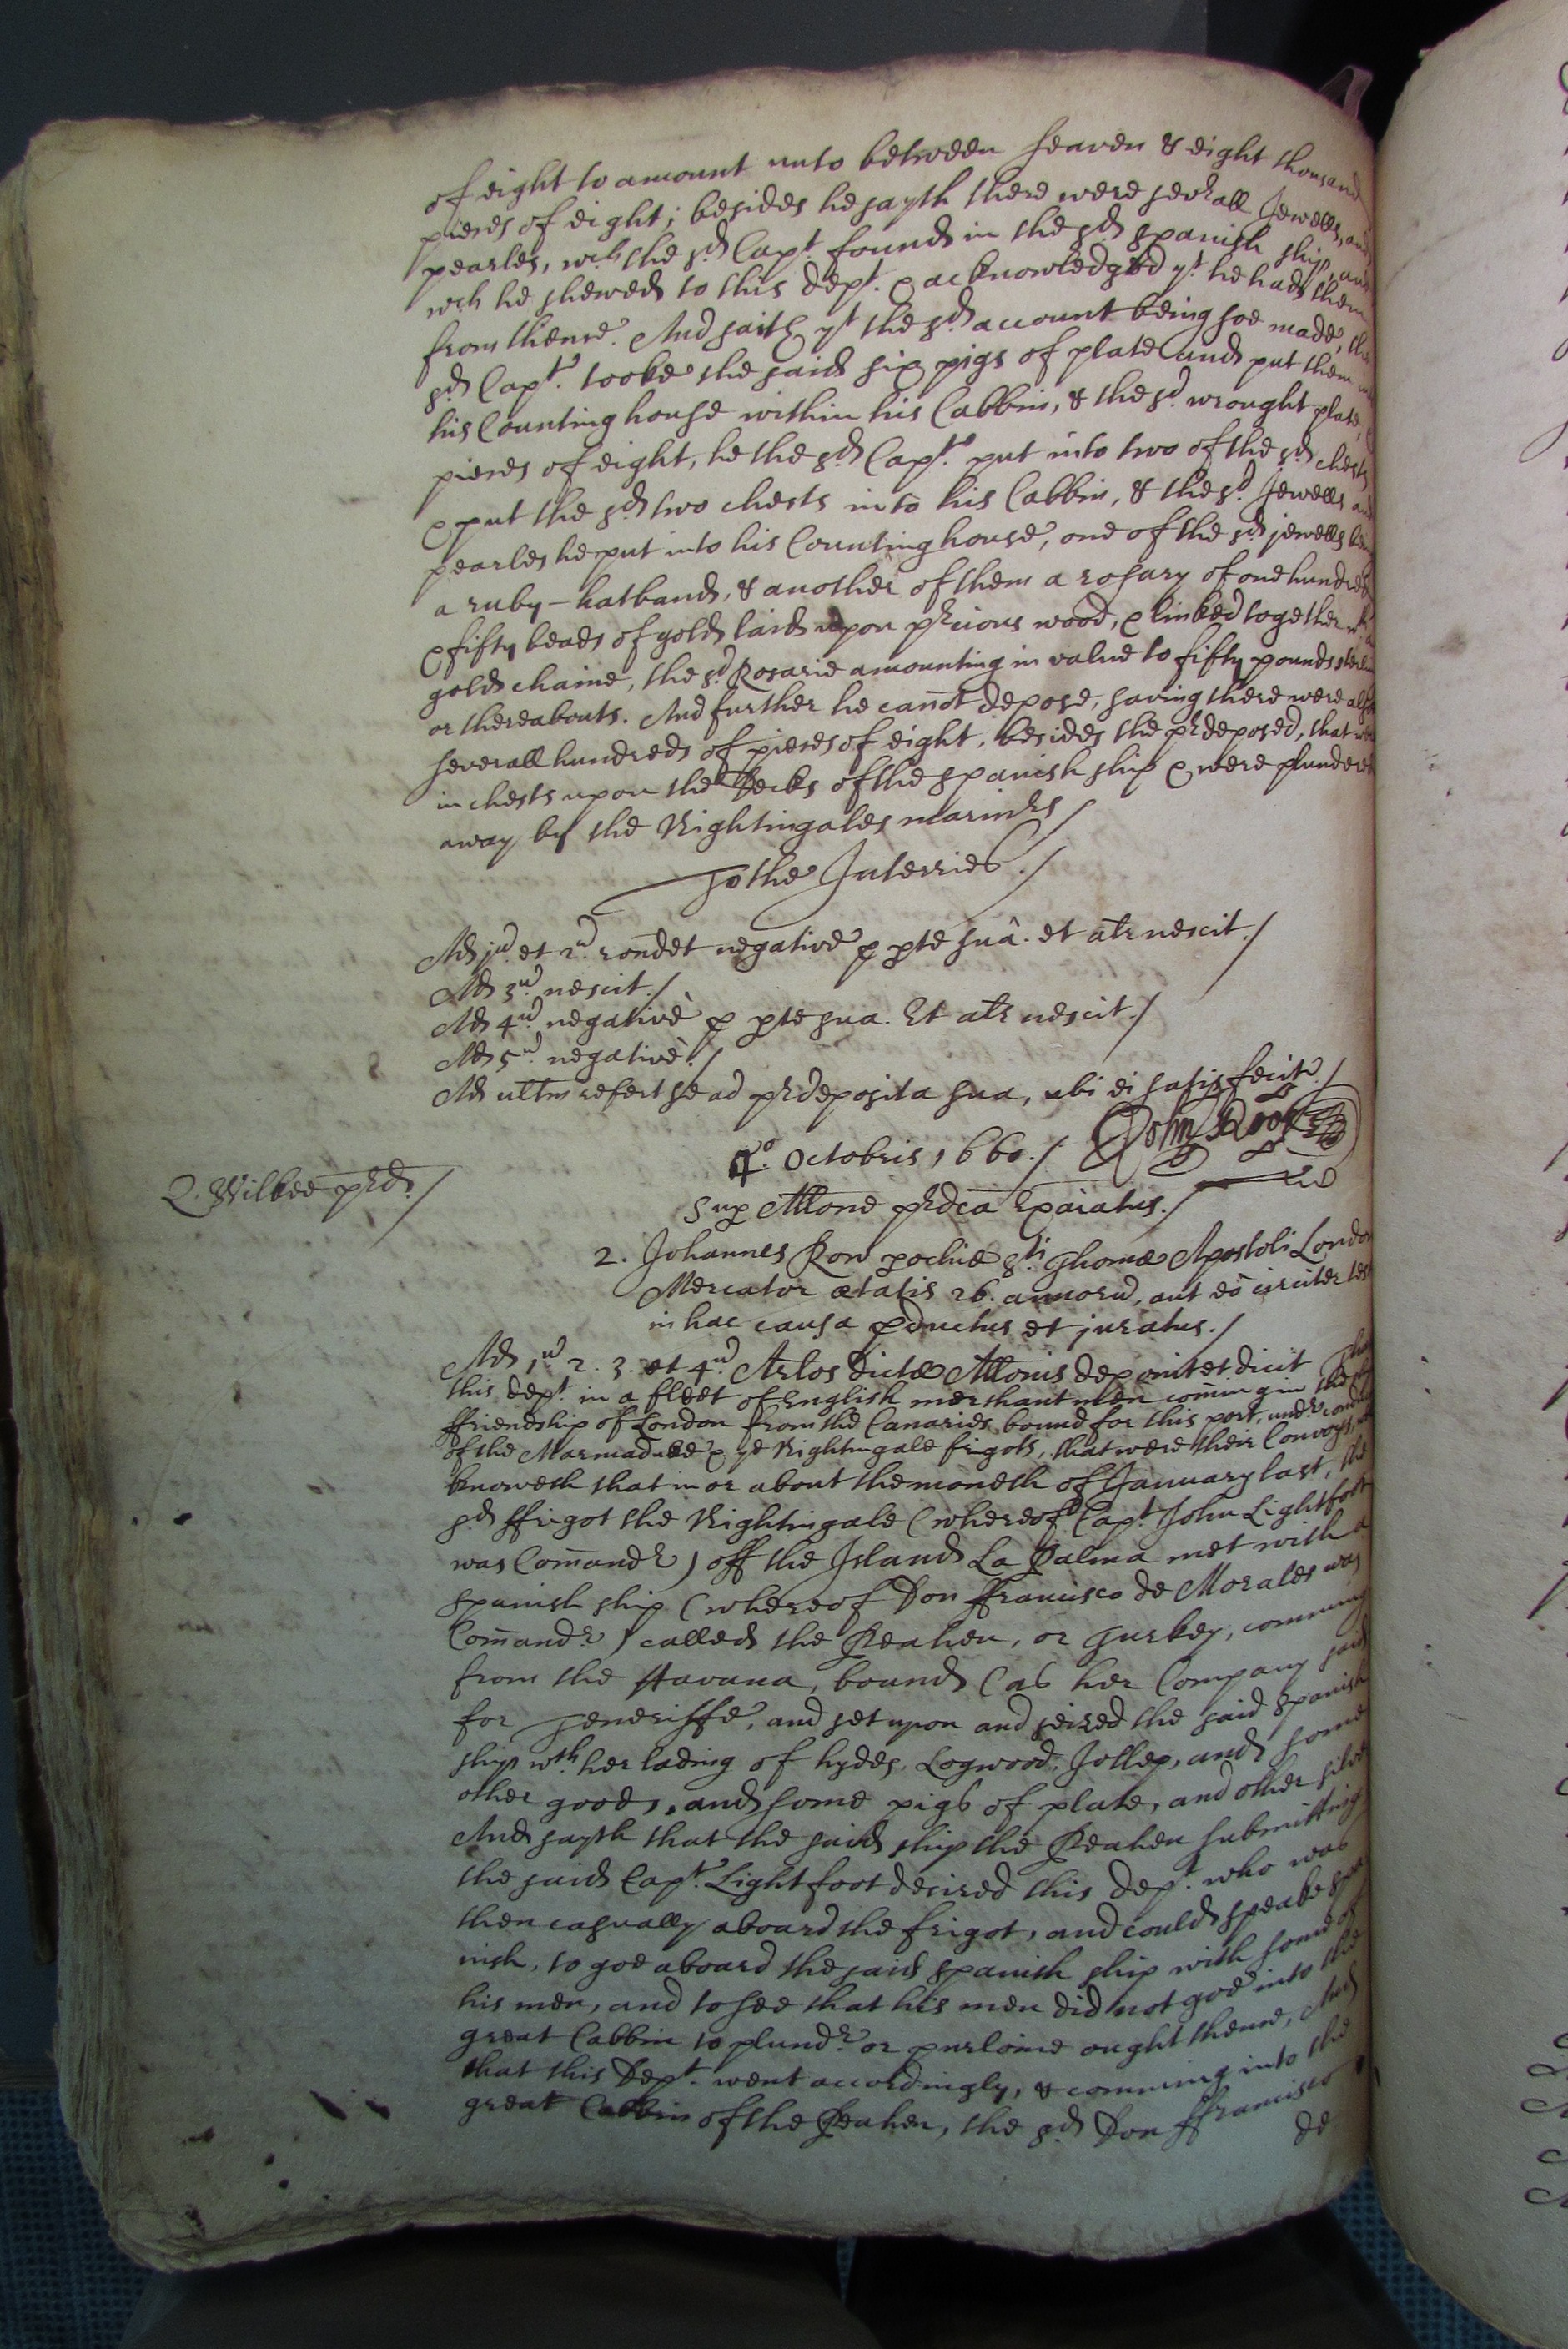 of eight to amount unto between seaven & eight thousand
pieces of eight; besides he sayth there were sev:rall Jewells, and
pearles, w:ch the s:d Cap:t found in the s:d Spanish ship, and
w:ch he shewed to this dep:t & acknowledged y:t he had them
from thence. And saith y:t the s:d account being soe made, the
s:d Cap:t tooke the said six pigs of plate and put them
his Counting house within his Cabbin, & the s:d wrought plate,
pieces of eight, he the s:d Cap:t put into two of the s:d chests
& put the s:d two chests into his Cabbin, & the s:d Jewells and
pearles he put into his Counting house, one of the s:d jewells
a ruby-hatband, & another of them a rosary of one hundred
& fifty beads of gold laid upon p:rcious wood, & linked together
gold chaine, the s:d Rosarie amounting in value to fifty pounds
or thereabouts. And further he can̄ot depose, saving there were
severall hundreds of pieces of eight, besides the p:rdeposed, that
in chests upon the Decks of the Spanish ship & were plundered
away by the Nightingales marin:rs/
To the Interries./
Ad j:u et 2:u rondet negative p pte suâ. et atr nescit./
Ad 3:u nescit./
Ad 4:u negativè p pte sua. Et atr nescit./
Ad 5:u negativè./
Ad ultm refert se ad p:rdeposita sua, ubi ei satisfecit./
4:o Octobris 1660./ John Rook
Sup Allone p:rdca Exaiatus./
R. Wilkee p:rd./
2. Johannes Row pochiæ S:ti Thomæ Apostoli London
Mercator ætatis 26. annorū, aut eò circiter
in hac causa pductus et juratus./
Ad 1:u 2. 3. et 4:u Arlos dictæ Allonis deponit et dicit That
this dep:t in a fleet of English merchant men com̄ing in the
ffriendship of London from the Canaries bound for this port, und:r
of the Marmaduke & ye Nightingale frigots, that were their Convoys,
knoweth that in or about the moneth of January last, the
s:d ffrigot the Nightingale (whereof Cap:t John Lightfoot
was Com̄and:r) off the Island La Palma met with a
Spanish ship (whereof Don ffrancisco de Morales was
Com̄and:r) called the Peahen, or Turkey, comming
from the Havana, bound (as her Company said
for Teneriffe, and set upon and seized the said Spanish
ship w:th her lading of hydes, Logwood, Jollep, and some
other goods, and some pigs of plate, and other
And sayth that the said ship the Peahen submitting
the said Cap:t Lightfoot desired this dep:t who was
then casually aboard the frigot, and could speake
nish, to goe aboard the said Spanish ship with some of
his men, and to see that his men did not goe into the
great Cabbin to plund:r or purloine ought thence, And
that this Dep:t went accordingly, & comming into the
great Cabbin of the Peahen, the s:d Don ffrancisco
de